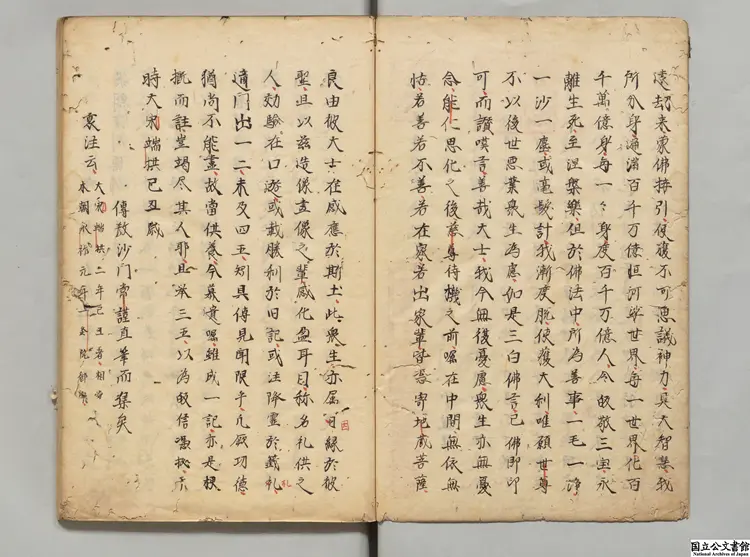 遠劫来蒙佛接引使獲不可思議神力具大智慧我
所分身遍滿百千万億恒河沙世界每一世界化百
千萬億身每一々身度百千万億人令皈敬三宝永
離生死至涅槃樂但於佛法中所為善事一毛一渧
一沙一塵或毫髮許我漸度脫使獲大利唯願世尊
不以後世悪業衆生為慮如是三白佛言已佛即印
可而讃嘆言善哉大士我今無復憂慮衆生亦無憂
念能化思化之後慈尊待機之前嘱在中間無依無
怙若善若不善若在家若出家輩皆悉寄地蔵菩薩
良由彼大士在感應於斯土此衆生亦属日縁於彼
因
聖且以茲造像畫像之輩感化盈耳目称名礼供之
人効驗在口遊或載勝利於旧記或注降霊於籤礼
札
適圖出一二未及四五矧具傳見聞限乎凡厥功德
猶尚不能盡故當供養今慕憶嘱雖成一記亦是梗
概而註豈竭尽其人耶且举三五以為皈信憑拠于
時大宋端拱己丑歳
傳教沙門常謹直筆而集矣
裏注云
大宋端拱二年己丑者相当
本朝永祚元年一条院御宇
国立公文書館
National Archives of Japan